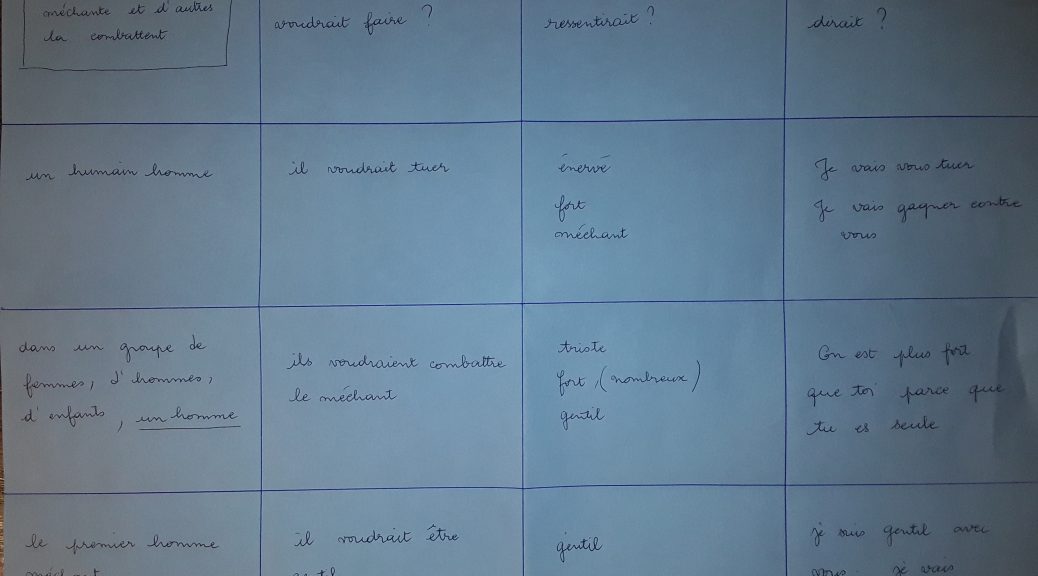 méchante et d'autres
la combattent
voudrait faire ?
ressentirait ?
dirait ?
un humain homme
il voudrait tuer
énervé
fort
méchant
Je vais vous tuer
Je vais gagner contre
vous
dans un groupe de
femmes, d'hommes,
d'enfants, un homme
ils voudraient combattre
le méchant
triste
fort, (nombreux)
gentil
On est plus fort
que toi parce que
tu es seule
le premier homme
méchant
il voudrait être
gentil
gentil
je suis gentil avec
vous. je vais